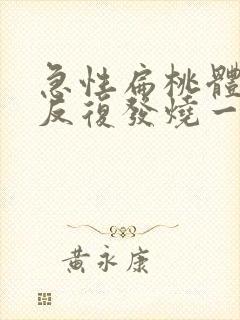 急性扁桃體
反復發燒一
黃永康